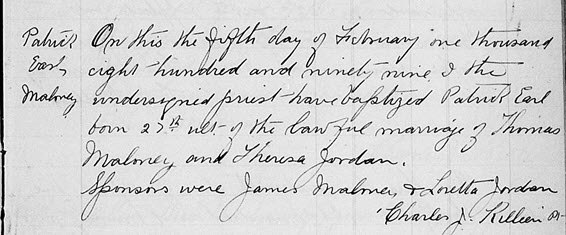 Patrick
Earl
Maloney
On this the fifth day of February one thousand
eight hundred and ninety nine I the
undersigned priest have baptized Patrick Earl
born 27th ult of the lawful marriage of Thomas
Maloney and Theresa Jordan.
Sponsors were James Maloney & Loretta Jordan
Charles J. Killeen